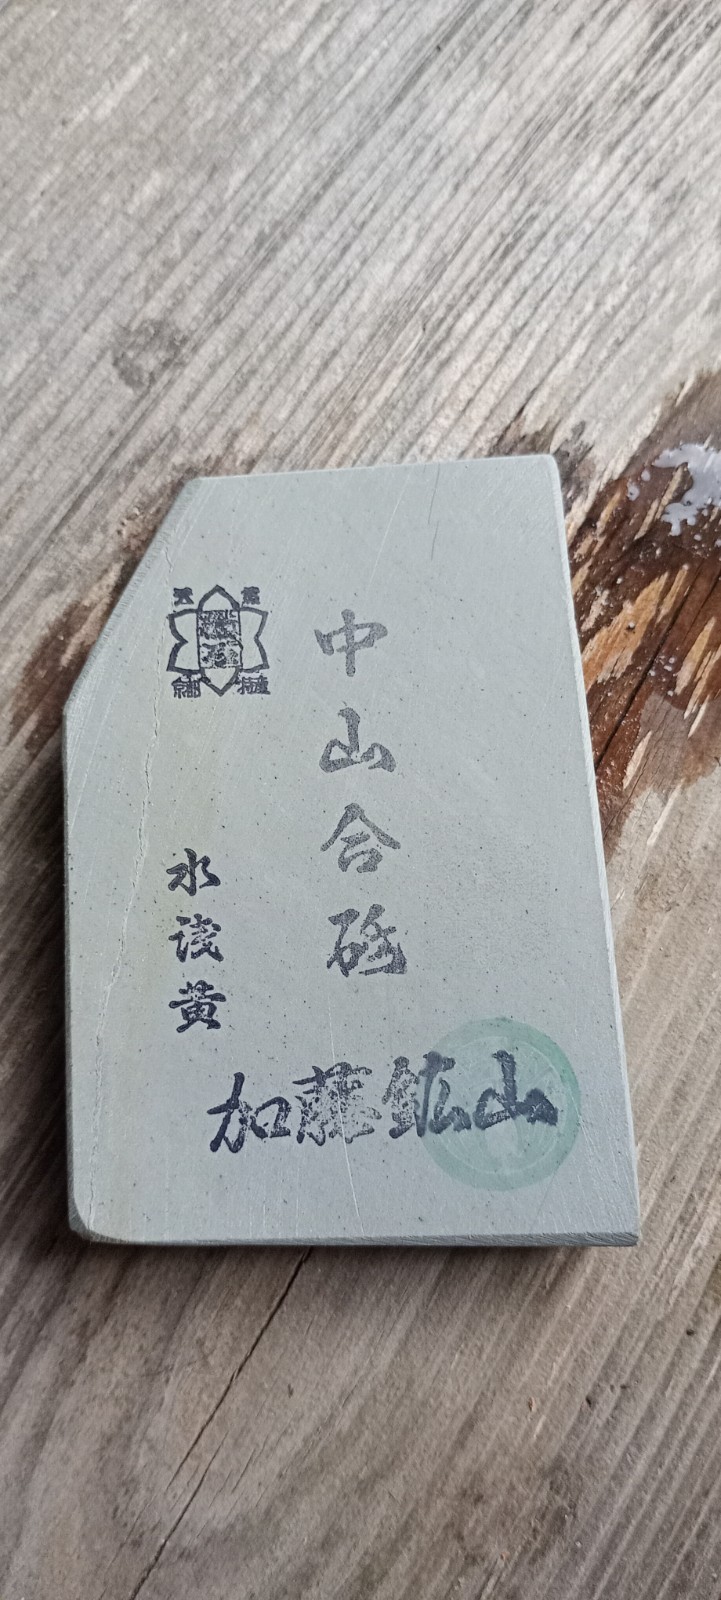 中山合砥
天然
砥石
京都
特産
水浅黄
加藤鉱山